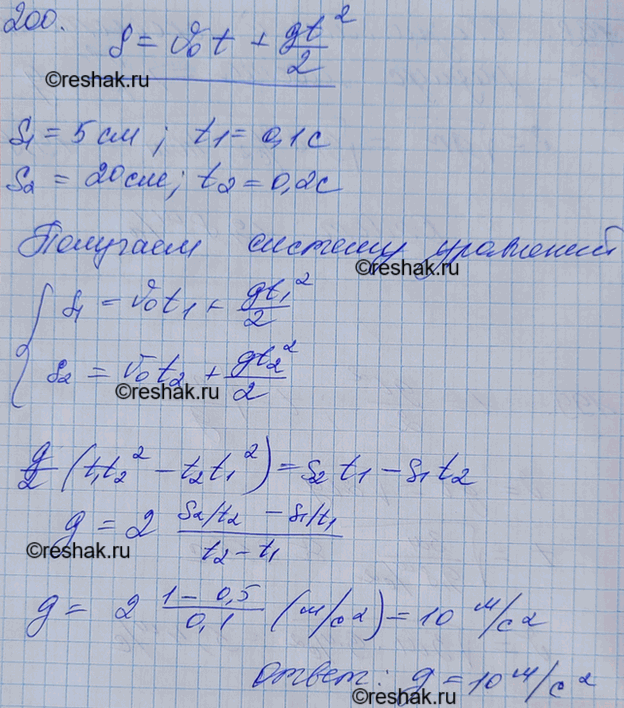 200.
S = v₀t + gt²/2
©reshak.ru
S₁ = 5 см; t₁ = 0,1с
S₂ = 20 см; t₂ = 0,2с
Получаем систему уравнений
©reshak.ru
{ S₁ = v₀t₁ + gt₁²/2
S₂ = v₀t₂ + gt₂²/2
©reshak.ru
g/2 (t₁t₂² - t₂t₁²) = S₂t₁ - S₁t₂
g = 2 (S₂/t₂ - S₁/t₁)/(t₂ - t₁)
©reshak.ru
g = 2 (1 - 0,5)/0,1 (м/с²) = 10 м/с²
ответ: g = 10 м/с²
©reshak.ru